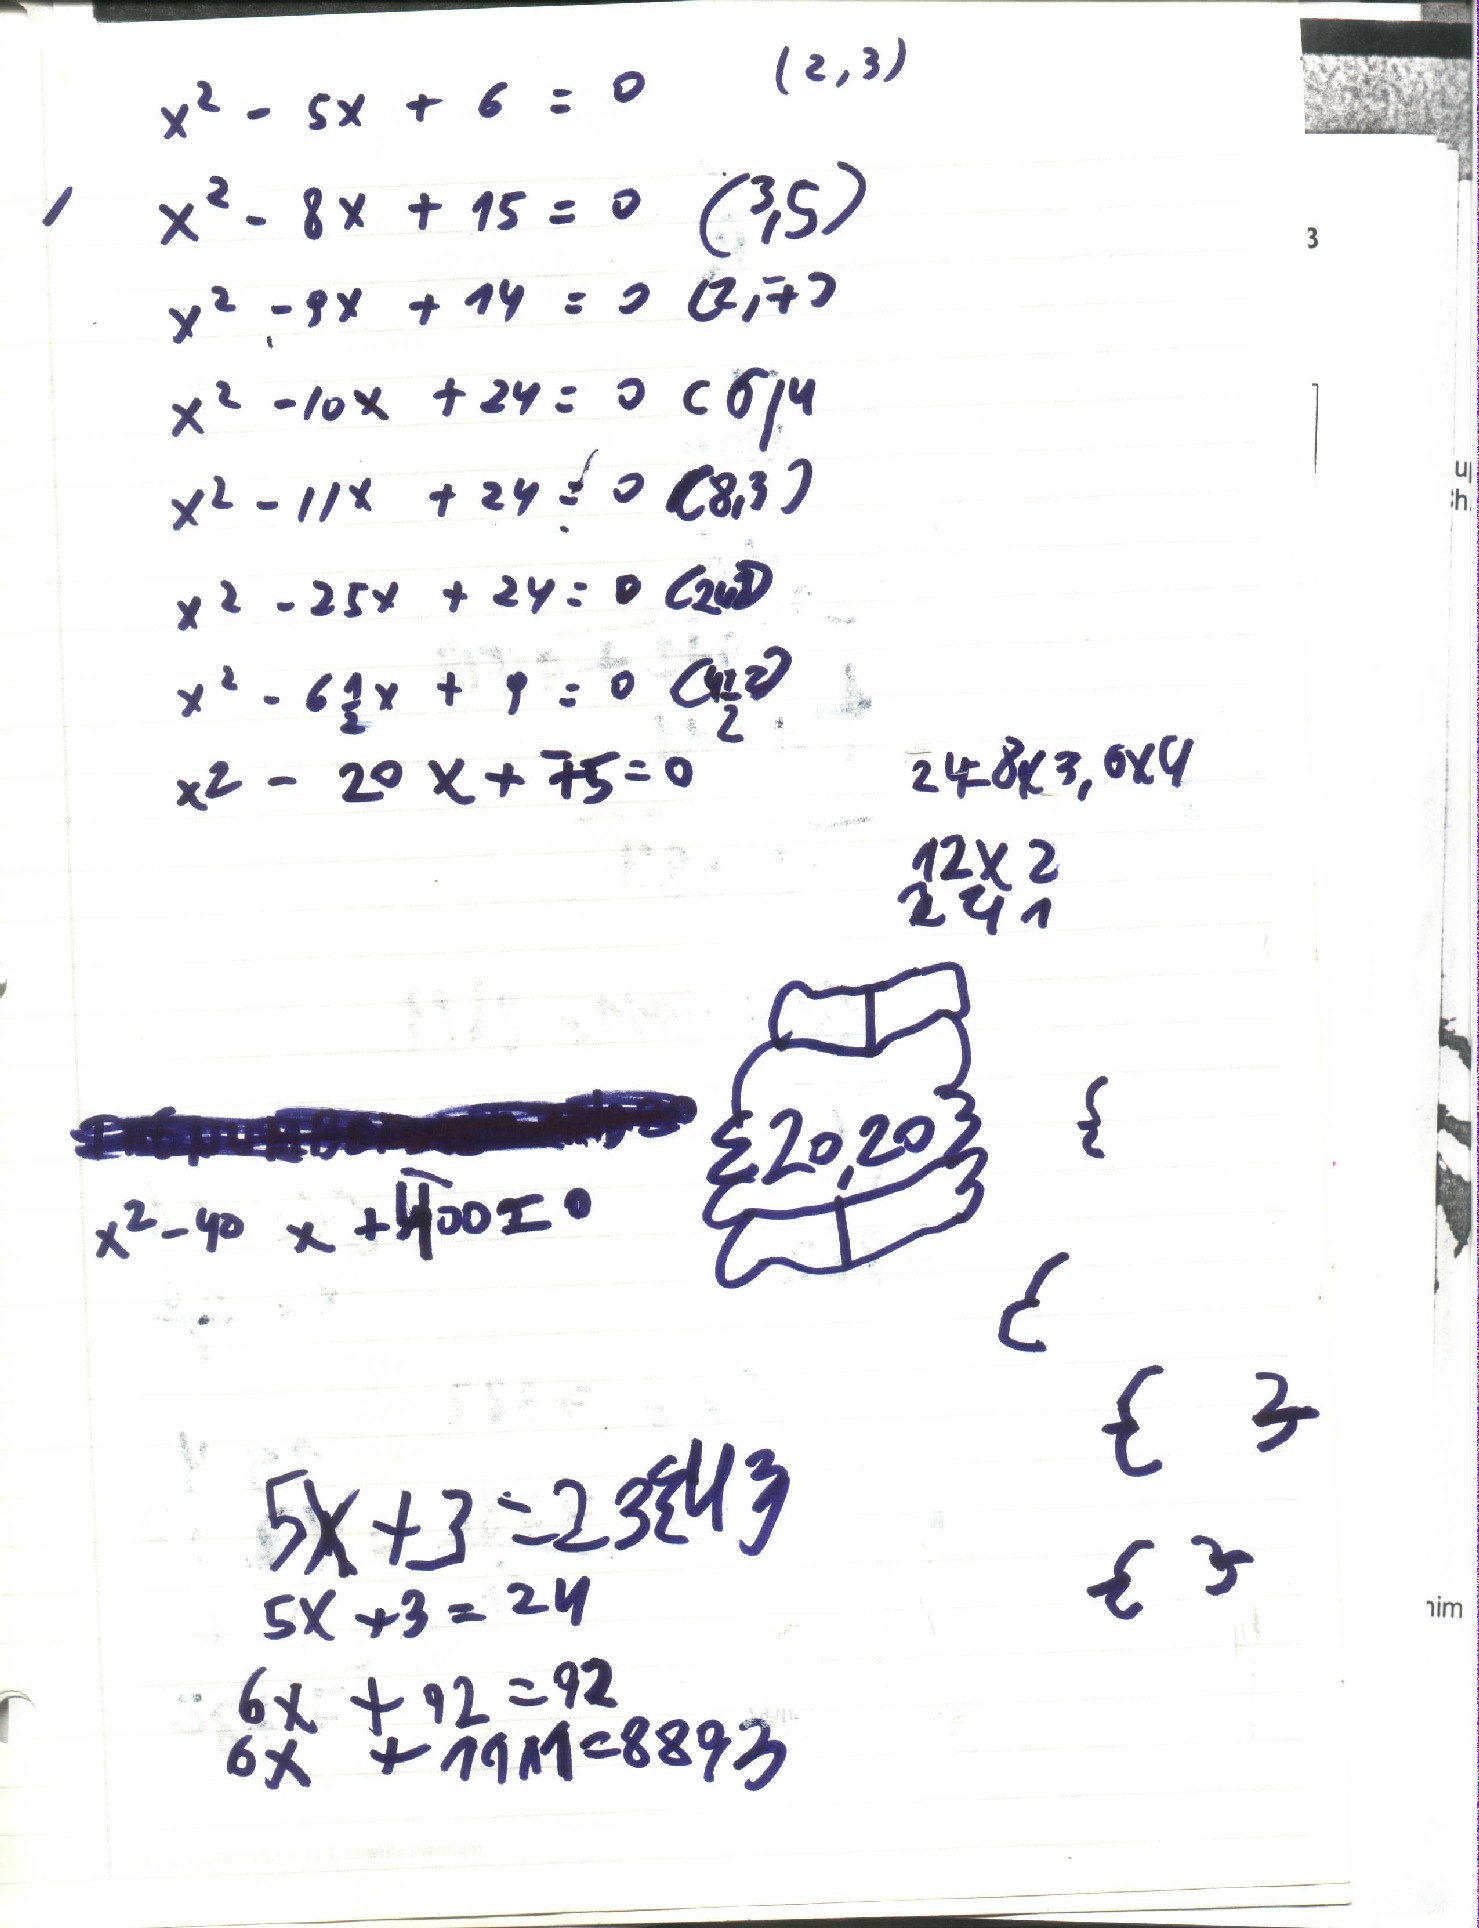 x² - 5x + 6 = 0 (2,3)
x² - 8x + 15 = 0 (3,5)
x² - 9x + 14 = 0 (2,7)
x² - 10x + 24 = 0 (6,4
x² - 11x + 24 = 0 (8,3)
x² - 25x + 24 = 0 (24,1)
x² - 6 1/2 x + 9 = 0 (4 1/2, 2)
x² - 20x + 75 = 0
24=8x3, 6x4
12x2
24 1
{20,20}
{
x² - 40 x + 400 = 0
{
{ }
5x + 3 = 23 {4}
{ }
5x + 3 = 24
6x + 92 = 92
6x + 1111 = 8893
3
nim